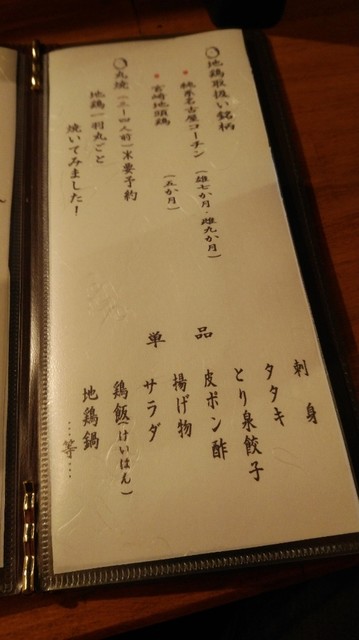 〇地鶏取扱い銘柄
純系名古屋コーチン（雄七か月・雌九か月）
宮崎地頭鶏（五か月）
〇丸焼（三〜四人前）※要予約
地鶏一羽丸ごと
焼いてみました！
単品
刺身
タタキ
とり泉餃子
皮ポン酢
揚げ物
サラダ
鶏飯（けいはん）
地鶏鍋
…等…